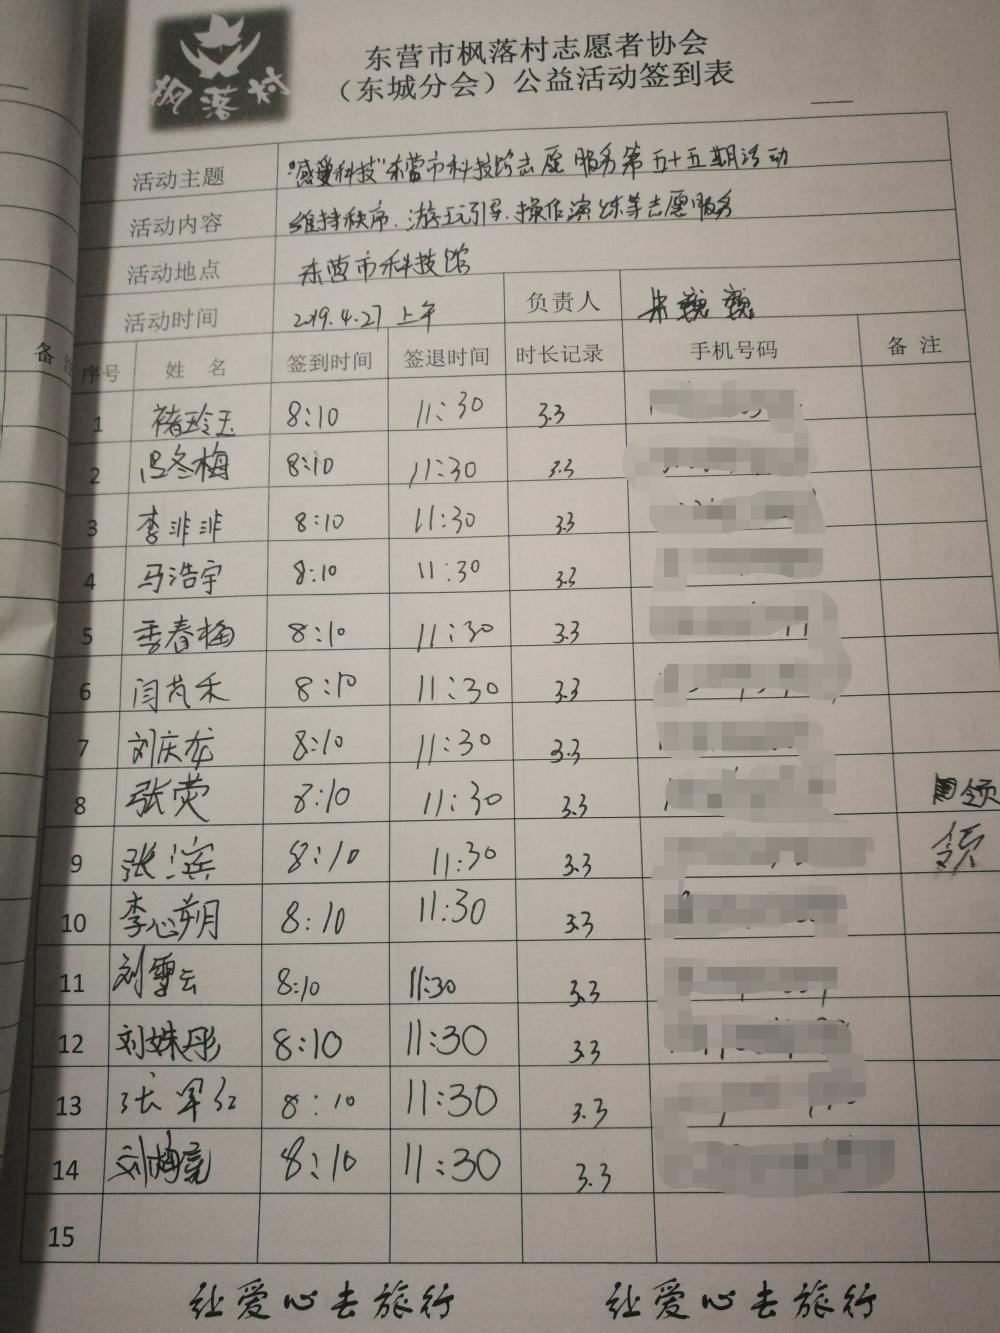 枫落村
东营市枫落村志愿者协会
（东城分会）公益活动签到表
活动主题 "感受科技"东营市科技馆志愿服务第五十五期活动
活动内容 维持秩序、游玩引导、操作演练等志愿服务
活动地点 东营市科技馆
活动时间 2019.4.27 上午 负责人 朱巍巍
备注
序号 姓 名 签到时间 签退时间 时长记录 手机号码 备 注
1 褚玲玉 8:10 11:30 3.3
2 吕冬梅 8:10 11:30 3.3
3 李非非 8:10 11:30 3.3
4 马浩宇 8:10 11:30 3.3
5 季春梅 8:10 11:30 3.3
6 闫芃禾 8:10 11:30 3.3
7 刘庆龙 8:10 11:30 3.3
8 张荧 8:10 11:30 3.3 领
9 张滨 8:10 11:30 3.3 领
10 李心朔 8:10 11:30 3.3
11 刘雪云 8:10 11:30 3.3
12 刘姝彤 8:10 11:30 3.3
13 张军红 8:10 11:30 3.3
14 刘梅亮 8:10 11:30 3.3
15
让爱心去旅行 让爱心去旅行